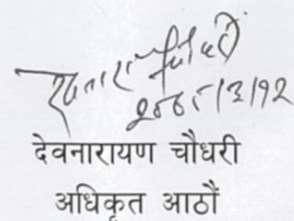 २०८१/३/१२
देवनारायण चौधरी
अधिकृत आठौं